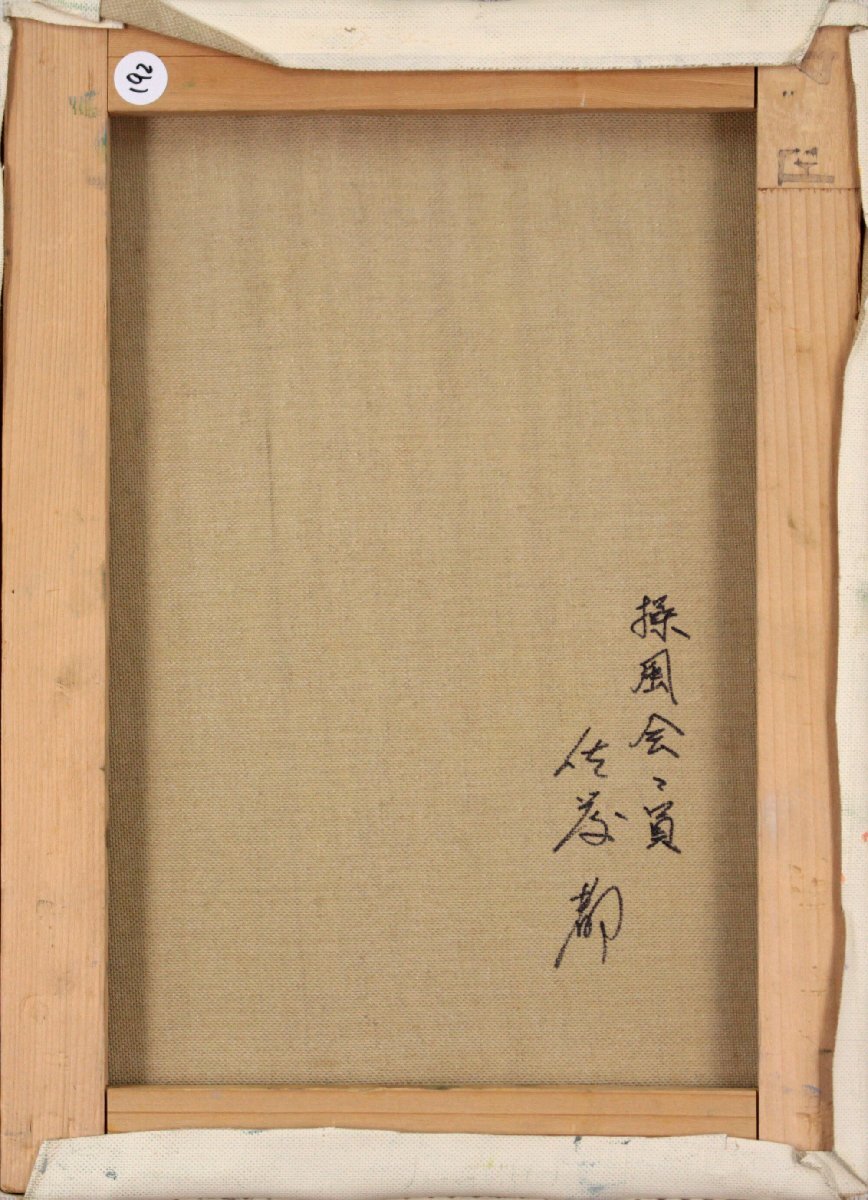 192
操風会々員
佐藤 都